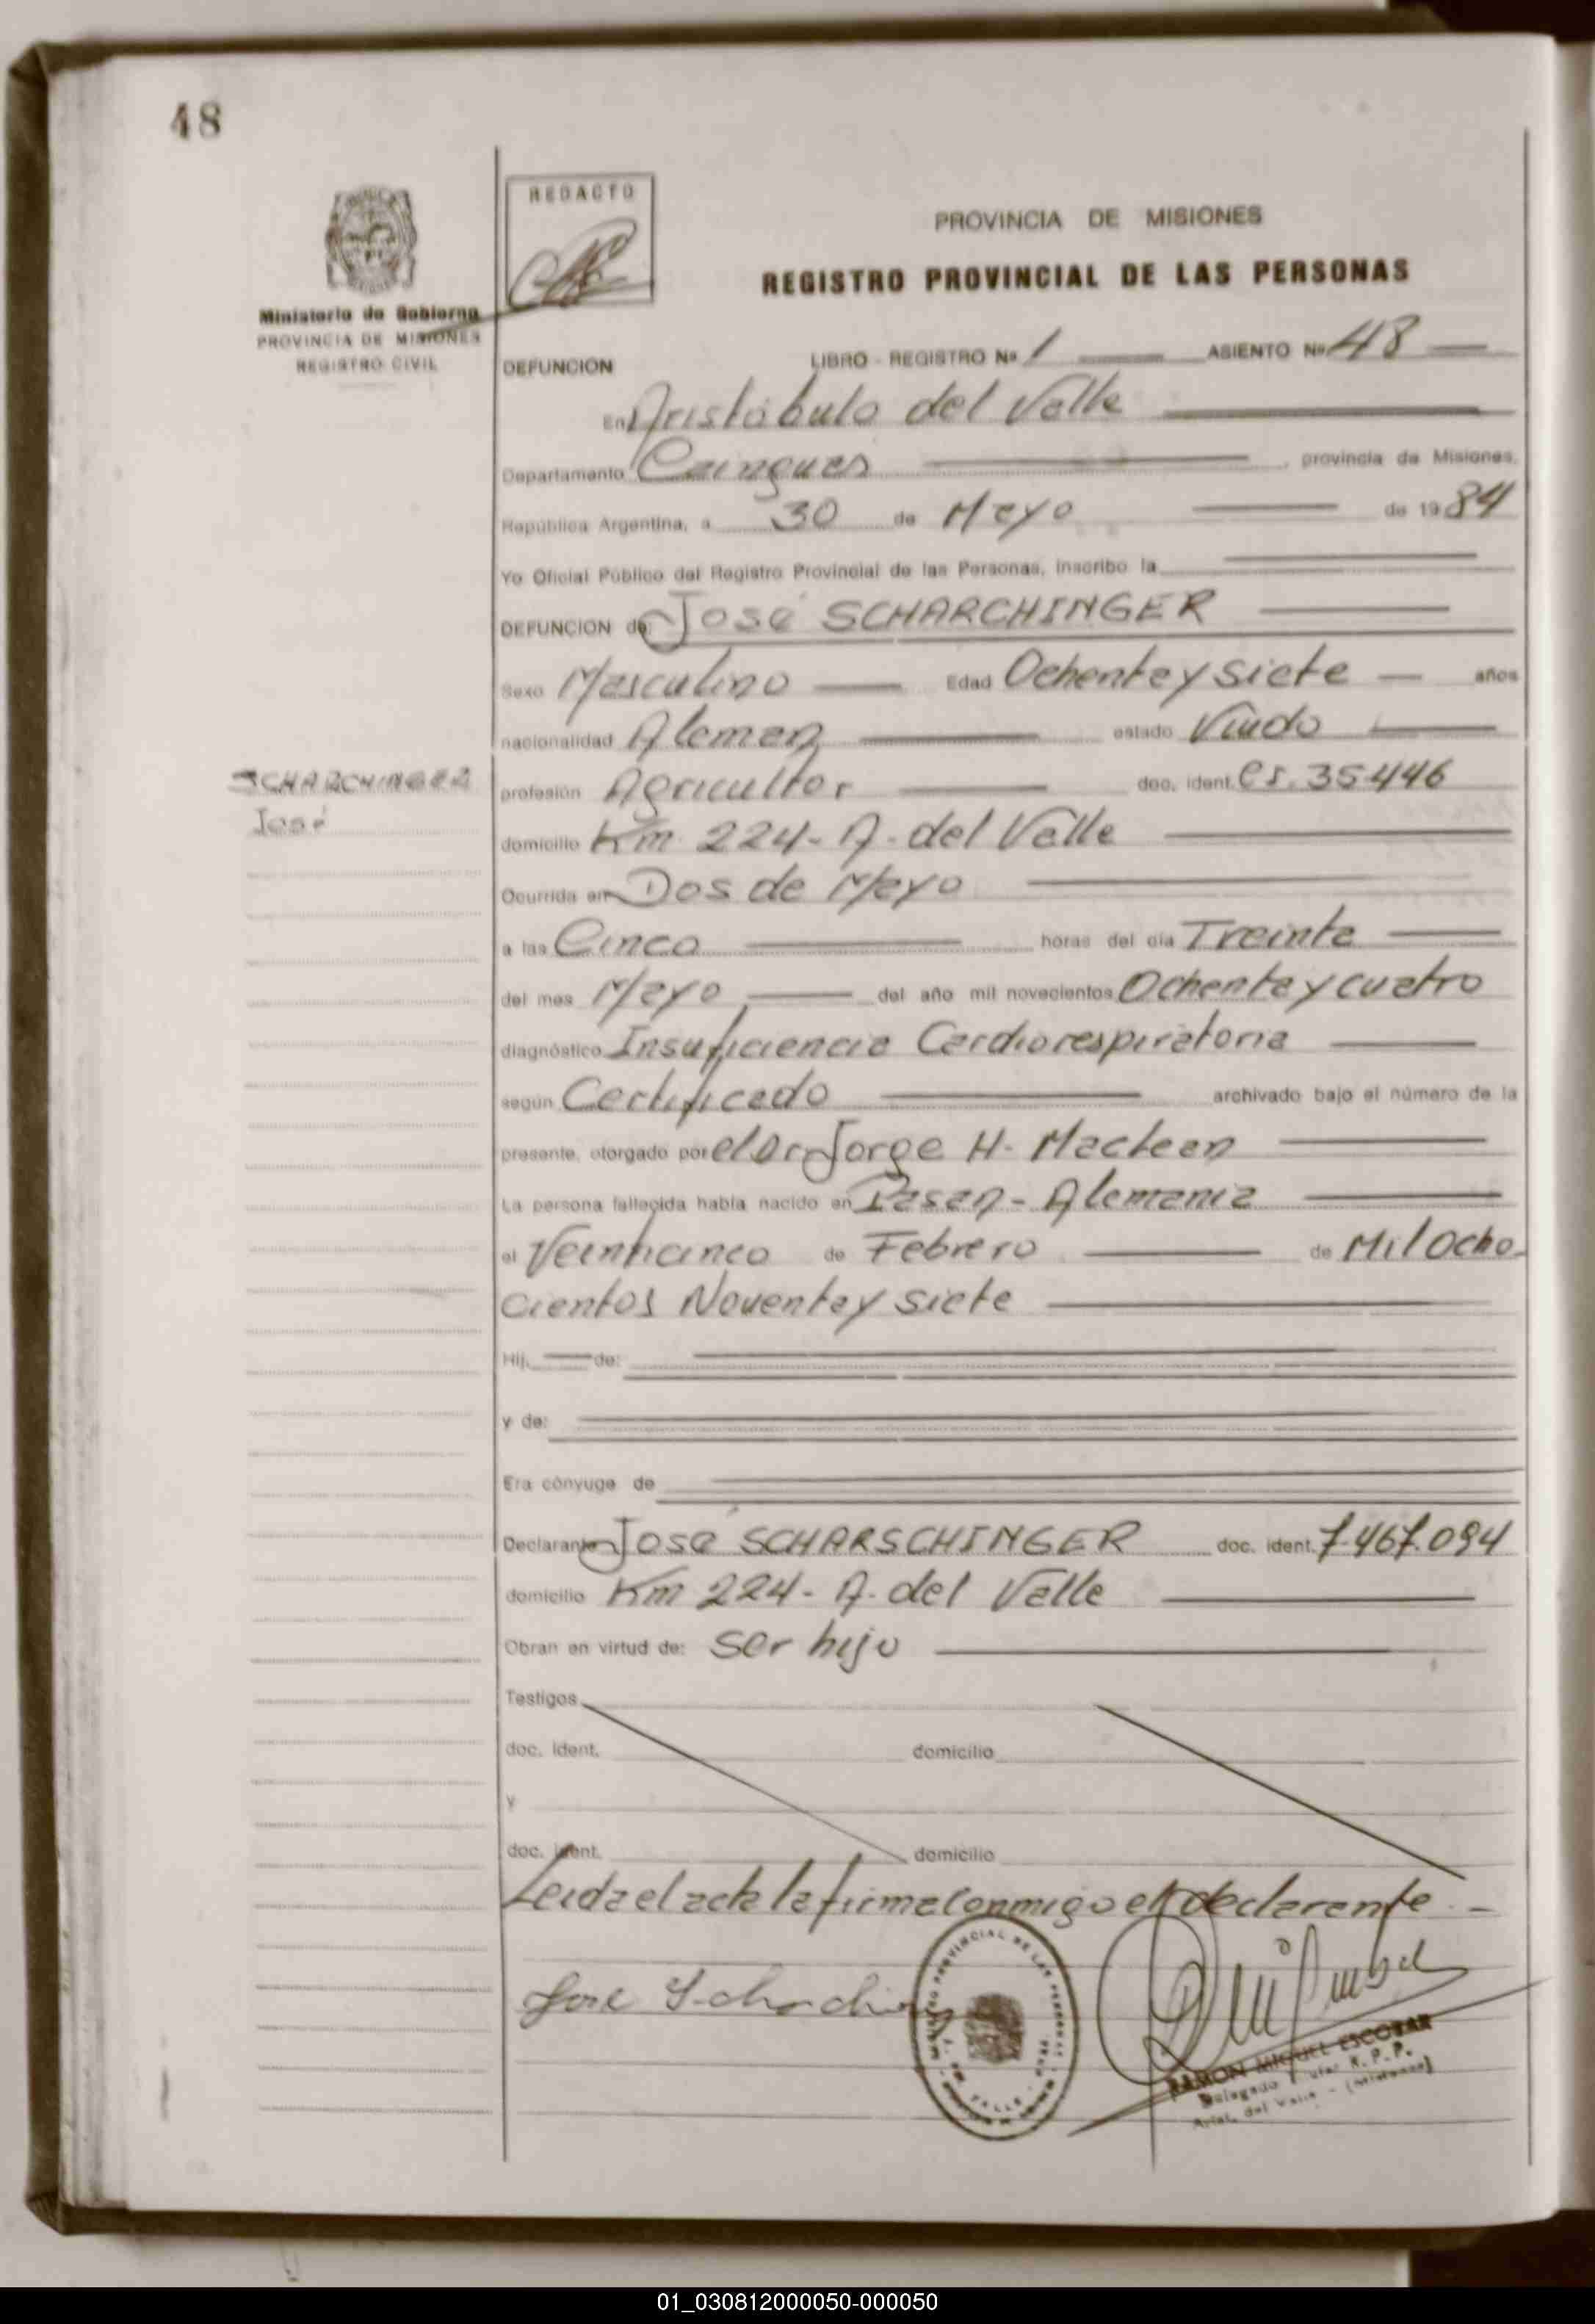 48
REDACTO
Ministerio de Gobierno
PROVINCIA DE MISIONES
REGISTRO CIVIL
PROVINCIA DE MISIONES
REGISTRO PROVINCIAL DE LAS PERSONAS
DEFUNCION LIBRO - REGISTRO Nº 1 ASIENTO Nº 48
En Aristóbulo del Valle
Departamento Cainguas, provincia de Misiones,
República Argentina, a 30 de Mayo de 1984
Yo Oficial Público del Registro Provincial de las Personas, inscribo la
DEFUNCION de José SCHARCHINGER
Sexo Masculino Edad Ochenta y siete años
nacionalidad Aleman estado Viudo
SCHARCHINGER
José
profesión Agricultor doc. ident. CI. 35446
domicilio Km. 224 - A. del Valle
Ocurrida en Dos de Mayo
a las Cinco horas del día Treinta
del mes Mayo del año mil novecientos Ochenta y cuatro
diagnóstico Insuficiencia Cardiorespiratoria
según Certificado archivado bajo el número de la
presente, otorgado por el Dr. Jorge H. Maclean
La persona fallecida había nacido en Pasan - Alemania
el Veinticinco de Febrero de Mil Ocho
cientos Noventa y siete
Hij de:
y de:
Era cónyuge de
Declarante José SCHARSCHINGER doc. ident. 7.467.094
domicilio Km 224 - A. del Valle
Obran en virtud de: ser hijo
Testigos
doc. ident. domicilio
y
doc. ident. domicilio
Leida el acta la firma conmigo el declarante. -
José
RAMON MIGUEL ESCOBAR
Delegado Titular R.P.P.
Arist. del Valle - (Misiones)
01_030812000050-000050